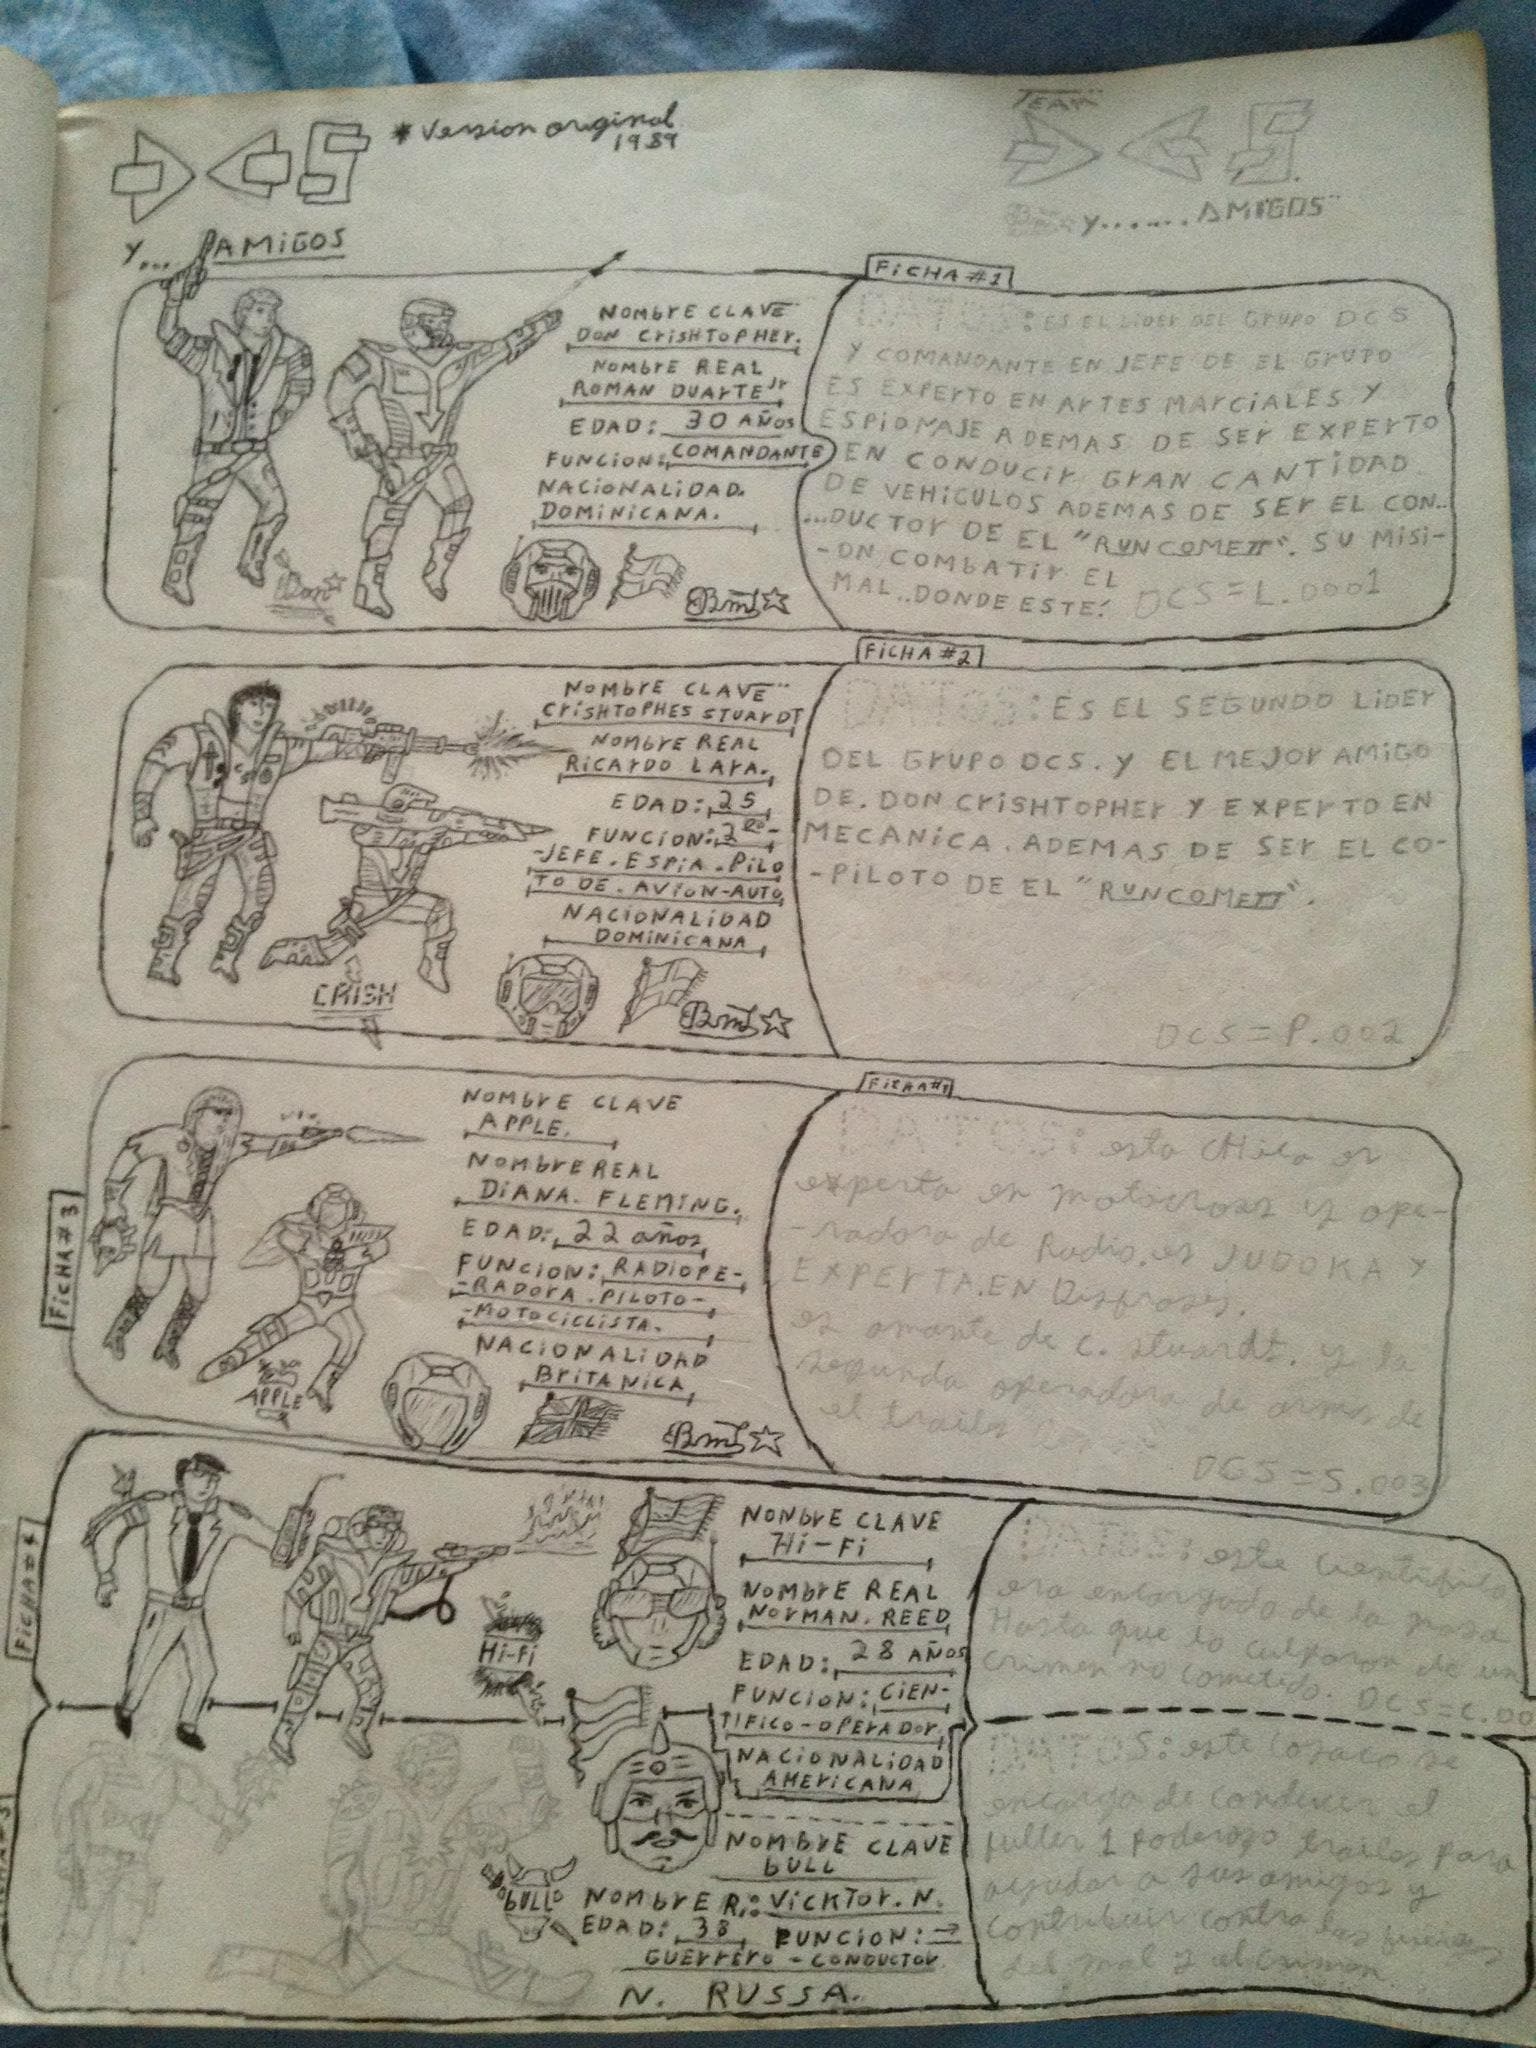 DCS
* Version original
1989
Y... AMIGOS
TEAM
DCS.
Y....... AMIGOS
FICHA #1
NOMBRE CLAVE
DON CRISHTOPHER.
NOMBRE REAL
ROMAN DUARTE Jr
EDAD: 30 AÑOS
FUNCION: COMANDANTE
NACIONALIDAD.
DOMINICANA.
Don
BmL
DATOS: ES EL LIDER DEL GRUPO DCS
Y COMANDANTE EN JEFE DE EL GRUPO
ES EXPERTO EN ARTES MARCIALES Y
ESPIONAJE ADEMAS DE SER EXPERTO
EN CONDUCIR GRAN CANTIDAD
DE VEHICULOS ADEMAS DE SER EL CON..
...DUCTOR DE EL "RUNCOMETT". SU MISI-
-ON COMBATIR EL
MAL..DONDE ESTE!
DCS=L.0001
FICHA #2
NOMBRE CLAVE
CRISHTOPHES STUARDT
NOMBRE REAL
RICARDO LARA.
EDAD: 25
FUNCION: 2DO-
-JEFE.ESPIA.PILO
TO DE.AVION-AUTO
NACIONALIDAD
DOMINICANA
CRISH
BmL
DATOS: ES EL SEGUNDO LIDER
DEL GRUPO DCS. Y EL MEJOR AMIGO
DE. DON CRISHTOPHER Y EXPERTO EN
MECANICA. ADEMAS DE SER EL CO-
-PILOTO DE EL "RUNCOMETT".
DCS=P.002
FICHA #3
NOMBRE CLAVE
APPLE.
NOMBRE REAL
DIANA. FLEMING.
EDAD: 22 años
FUNCION: RADIOPE-
-RADORA.PILOTO-
-MOTOCICLISTA.
NACIONALIDAD
BRITANICA
APPLE
BmL
DATOS: esta chica es
experta en motocross y ope-
-radora de Radio. es JUDOKA Y
EXPERTA.EN Disfraces.
es amante de C. Stuardt. y la
segunda operadora de armas de
el trailer
DCS=S.003
FICHA #4
NONBRE CLAVE
Hi-Fi
NOMBRE REAL
NORMAN. REED
EDAD: 28 AÑOS
FUNCION: CIEN-
TIFICO-OPERADOR.
NACIONALIDAD
AMERICANA
Hi-Fi
DATOS: este cientifico
era encargado de la
Hasta que lo culparon de un
crimen no cometido. DCS=C.00
NOMBRE CLAVE
BULL
BULL
NOMBRE R.: VICKTOR.N.
EDAD: 38 FUNCION:
GUERRERO-CONDUCTOR
N. RUSSA.
DATOS: este Cosaco se
encarga de conducir el
1 poderozo trailer para
ayudar a sus amigos y
contribuir contra las fuerzas
del mal y el crimen.